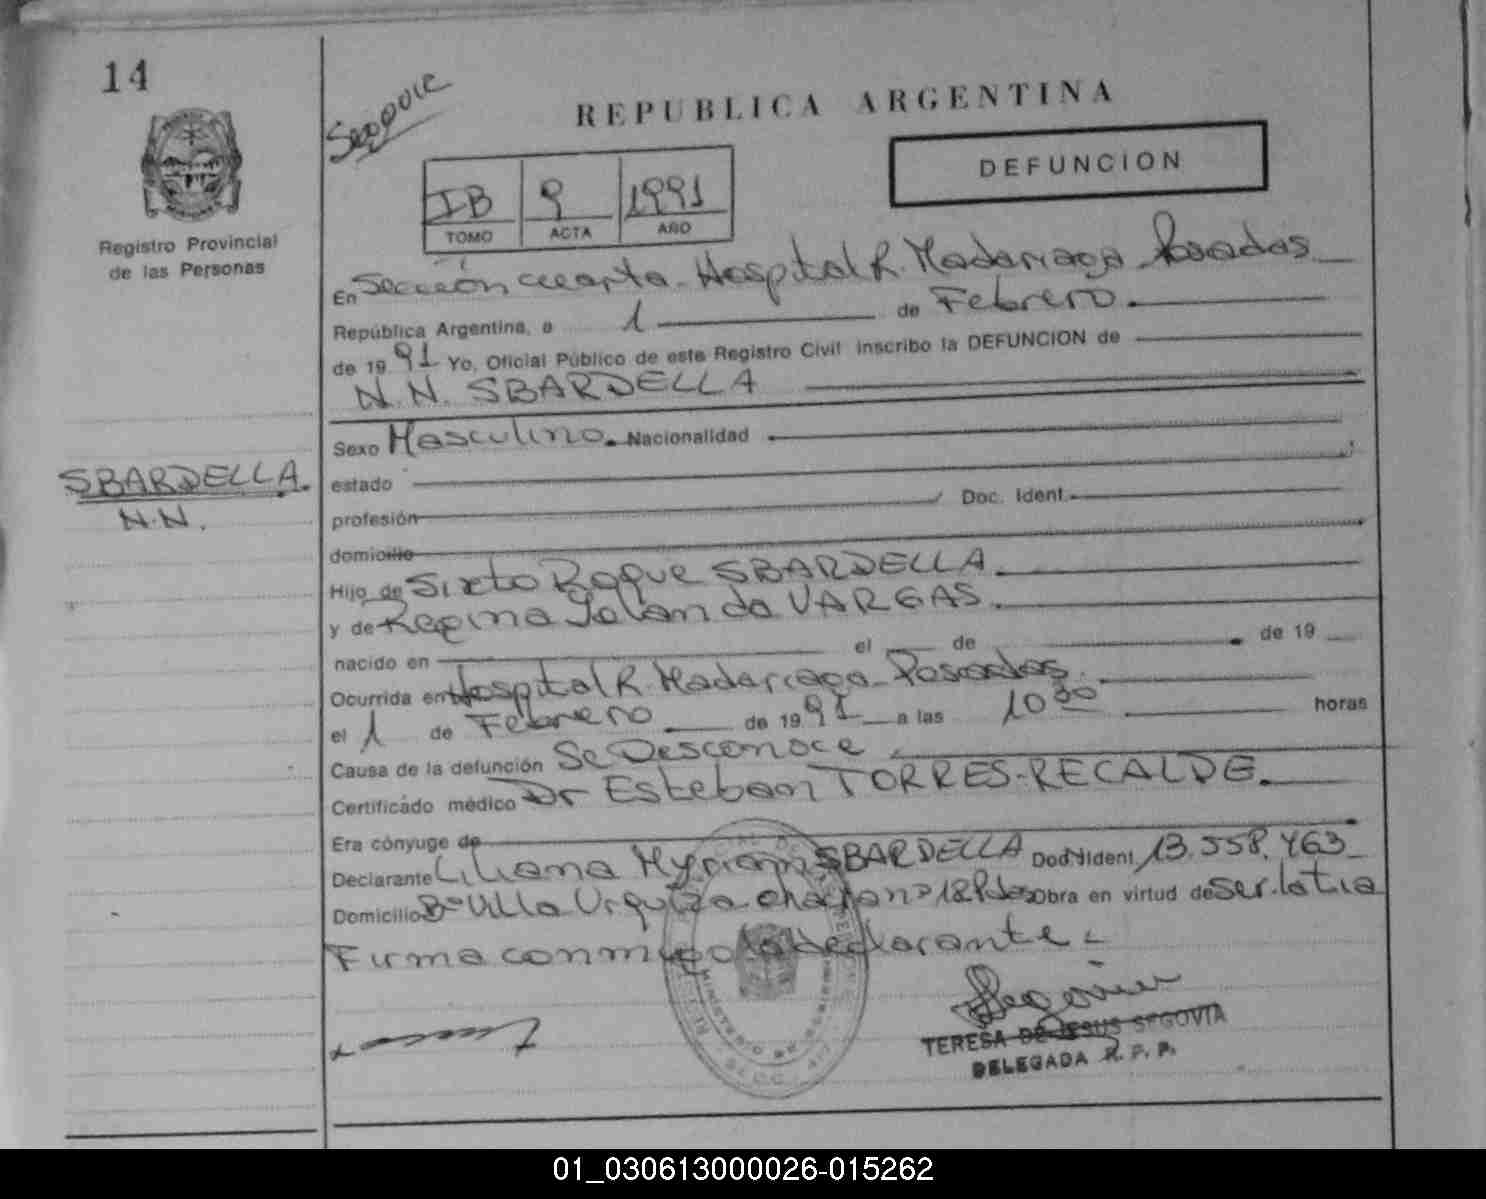 14
Segovia
REPUBLICA ARGENTINA
DEFUNCION
IB 9 1991
TOMO ACTA AÑO
Registro Provincial
de las Personas
En Sección cuarta - Hospital R. Madariaga Posadas
República Argentina, a 1 de Febrero
de 1991 Yo, Oficial Público de este Registro Civil inscribo la DEFUNCION de
N.N. SBARDELLA
Sexo Masculino. Nacionalidad
SBARDELLA.
N.N.
estado
profesión Doc. Ident.
domicilio
Hijo de Sixto Roque SBARDELLA.
y de Regina Yolanda VARGAS.
nacido en el de de 19
Ocurrida en Hospital R. Madariaga - Posadas.
el 1 de Febrero de 1991 a las 10 30 horas
Causa de la defunción Se Desconoce.
Certificado médico Dr Esteban TORRES-RECALDE.
Era cónyuge de
Declarante Liliana Myriam SBARDELLA Doc. Ident. 13.558.463
Domicilio Bº Villa Urquiza chacra nº 18 Pdas Obra en virtud de ser la tia
Firma conmigo la declarante -
MINISTERIO DE GOBIERNO
Segovia
TERESA DE JESUS SEGOVIA
DELEGADA R. P. P.
01_030613000026-015262